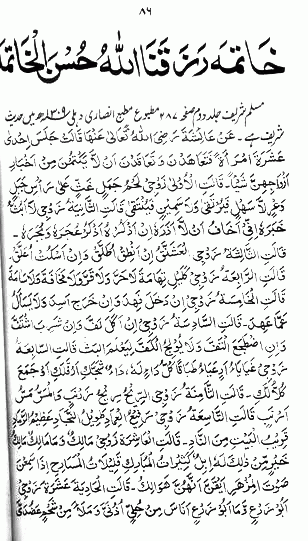 ۸۶
خاتمه رزقنا الله حسن الخاتمة
مسلم شریف جلد دوم صفحہ ۲۸۷ مطبوع مطبع انصاری دہلی ۱۳۰۹ھ میں حدیث
شریف ہے۔ عن عائشة رضي الله تعالى عنها قالت جلس إحدى
عشرة امرأة فتعاهدن وتعاقدن أن لا يكتمن من أخبار
أزواجهن شيئا۔ قالت الأولى زوجي لحم جمل غث على رأس جبل
وعر لا سهل فيرتقى ولا سمين فينتقى قالت الثانية زوجي لا أبث
خبره إني أخاف أن لا أذره إن أذكره أذكر عجره وبجره۔
قالت الثالثة زوجي العشنق إن أنطق أطلق وإن أسكت أعلق۔
قالت الرابعة زوجي كليل تهامة لا حر ولا قر ولا مخافة ولا سآمة
قالت الخامسة زوجي إن دخل فهد وإن خرج أسد ولا يسأل
عما عهد۔ قالت السادسة زوجي إن أكل لف وإن شرب اشتف
وإن اضطجع التف ولا يولج الكف ليعلم البث قالت السابعة
زوجي غياياء أو عياياء طباقاء كل داء له داء شجك أو فلك أو جمع
كلا لك۔ قالت الثامنة زوجي الريح ريح زرنب والمس مس
أرنب قالت التاسعة زوجي رفيع العماد طويل النجاد عظيم الرماد
قريب البيت من الناد۔ قالت العاشرة زوجي مالك وما مالك مالك
خير من ذلك له إبل كثيرات المبارك قليلات المسارح إذا سمعن
صوت المزهر أيقن أنهن هوالك۔ قالت الحادية عشرة زوجي
أبو زرع فما أبو زرع أناس من حلي أذني وملأ من شحم عضدي